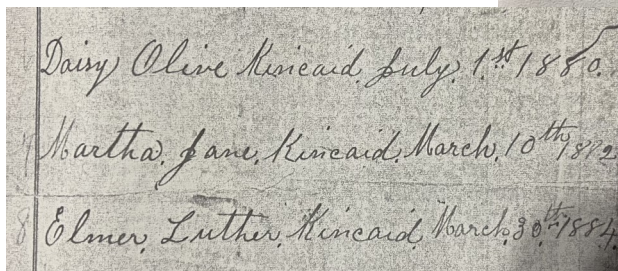 Daisy Olive Kincaid, July, 1.st 1880.
7 Martha, Jane, Kincaid, March, 10th 1882
8 Elmer, Luther, Kincaid, March, 30th 1884.